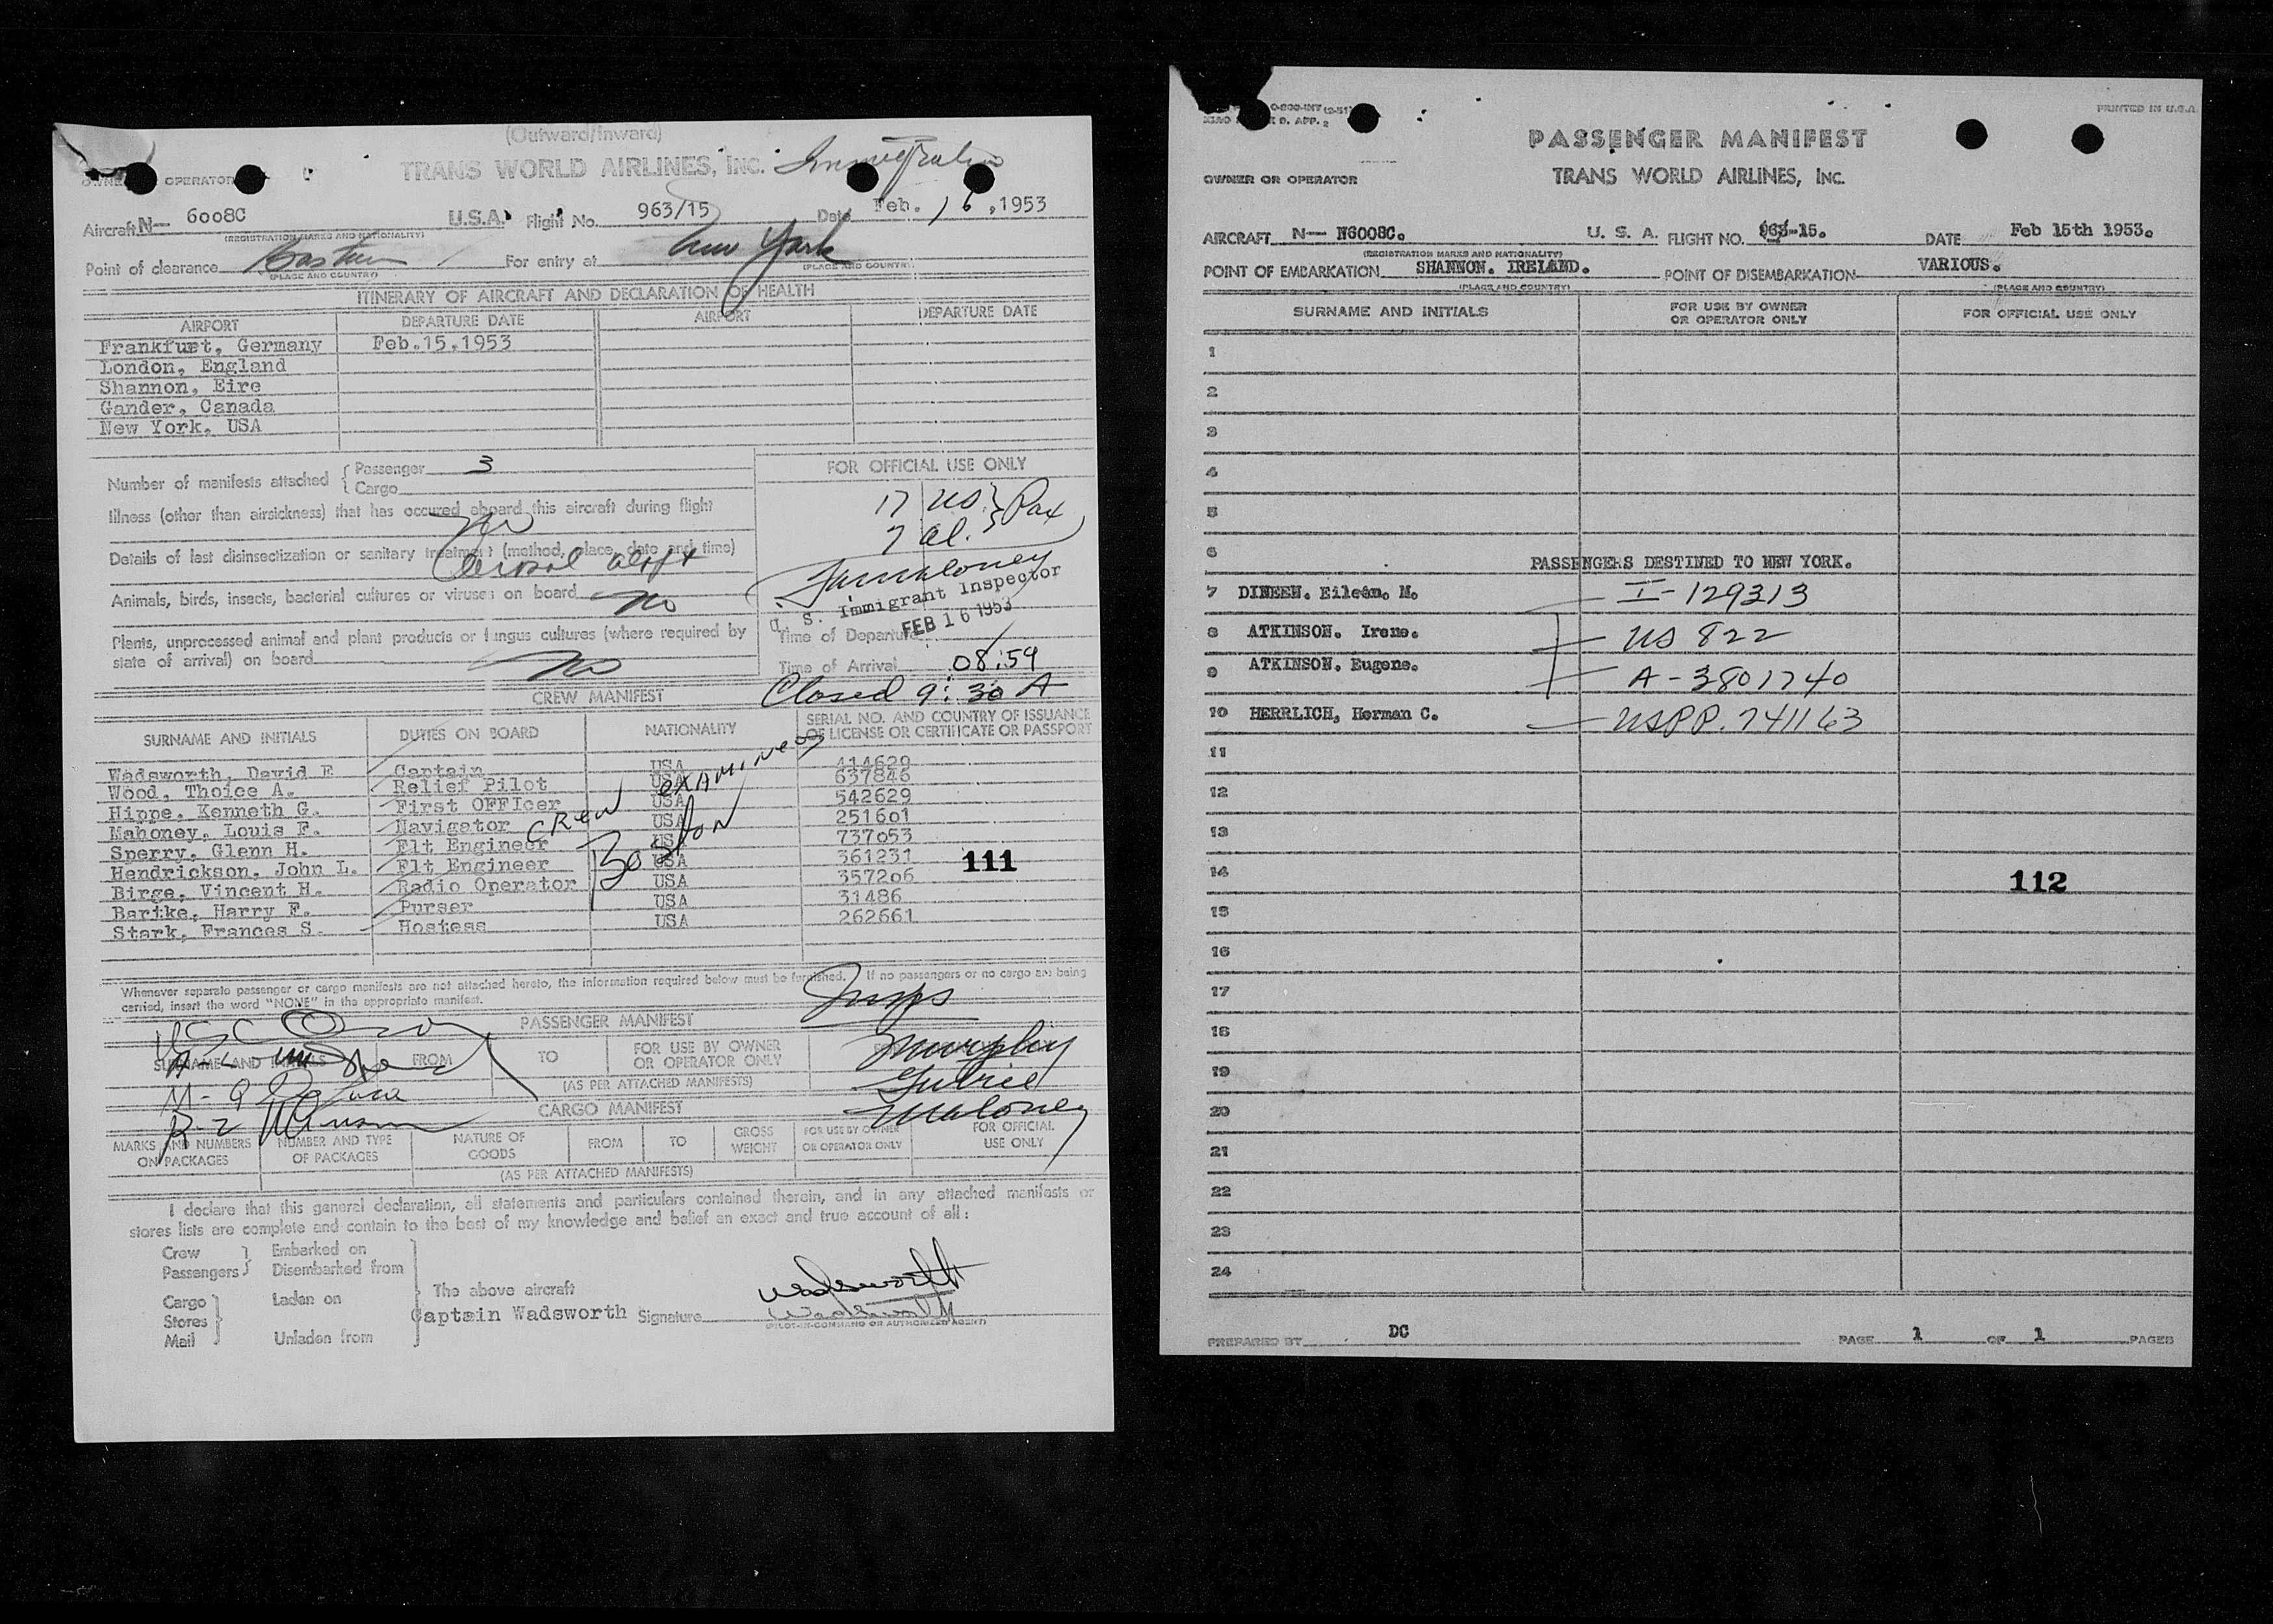 (Outward/Inward)
OPERATOR TRANS WORLD AIRLINES, INC. Immigration
Aircraft N— 6008C U.S.A. Flight No. 963/15 Date Feb. 16, 1953
(REGISTRATION MARKS AND NATIONALITY)
Point of clearance Boston For entry at New York
(PLACE AND COUNTRY) (PLACE AND COUNTRY)
ITINERARY OF AIRCRAFT AND DECLARATION OF HEALTH
AIRPORT DEPARTURE DATE AIRPORT DEPARTURE DATE
Frankfurt, Germany Feb.15,1953
London, England
Shannon, Eire
Gander, Canada
New York, USA
Number of manifests attached { Passenger 3
Cargo
Illness (other than airsickness) that has occured aboard this aircraft during flight
No
Details of last disinsectization or sanitary treatment (method, place, date and time)
Aerosol aloft
Animals, birds, insects, bacterial cultures or viruses on board no
Plants, unprocessed animal and plant products or fungus cultures (where required by
state of arrival) on board no
FOR OFFICIAL USE ONLY
17 US } Pax
7 al.
U. S. Immigrant Inspector
FEB 16 1953
Time of Departure
Time of Arrival 08:59
Closed 9:30 A
CREW MANIFEST
SURNAME AND INITIALS DUTIES ON BOARD NATIONALITY SERIAL NO. AND COUNTRY OF ISSUANCE OF LICENSE OR CERTIFICATE OR PASSPORT
Wadsworth, David E Captain USA 414629
Wood, Thoice A. Relief Pilot USA 637846
Hippe, Kenneth G. First OFFIcer USA 542629
Mahoney, Louis F. Navigator USA 251601
Sperry, Glenn H. Flt Engineer USA 737053
Hendrickson, John L. Flt Engineer USA 361231
Birge, Vincent H. Radio Operator USA 357206
Bartke, Harry F. Purser USA 31486
Stark, Frances S. Hostess USA 262661
CREW EXAMINED
Boston
111
Whenever separate passenger or cargo manifests are not attached hereto, the information required below must be furnished. If no passengers or no cargo are being
carried, insert the word "NONE" in the appropriate manifest.
Insps
PASSENGER MANIFEST
SURNAME AND INITIALS FROM TO FOR USE BY OWNER OR OPERATOR ONLY
Murphy
(AS PER ATTACHED MANIFESTS)
Maloney
CARGO MANIFEST
MARKS AND NUMBERS ON PACKAGES NUMBER AND TYPE OF PACKAGES NATURE OF GOODS FROM TO GROSS WEIGHT FOR USE BY OWNER OR OPERATOR ONLY FOR OFFICIAL USE ONLY
(AS PER ATTACHED MANIFESTS)
I declare that this general declaration, all statements and particulars contained therein, and in any attached manifests or
stores lists are complete and contain to the best of my knowledge and belief an exact and true account of all:
Crew Embarked on
Passengers Disembarked from
The above aircraft
Cargo Laden on
Stores
Mail Unladen from
Captain Wadsworth Signature Wadsworth
Wadsworth
(PILOT-IN-COMMAND OR AUTHORIZED AGENT)
O-800-INT (2-51)
D. APP. 2
PRINTED IN U.S.A.
PASSENGER MANIFEST
OWNER OR OPERATOR TRANS WORLD AIRLINES, INC.
AIRCRAFT N— N6008C. U. S. A. FLIGHT NO. 963-15. DATE Feb 15th 1953.
(REGISTRATION MARKS AND NATIONALITY)
POINT OF EMBARKATION SHANNON. IRELAND. POINT OF DISEMBARKATION VARIOUS.
(PLACE AND COUNTRY) (PLACE AND COUNTRY)
SURNAME AND INITIALS FOR USE BY OWNER OR OPERATOR ONLY FOR OFFICIAL USE ONLY
1
2
3
4
5
6 PASSENGERS DESTINED TO NEW YORK.
7 DINEEN. Eileen. M. I-129313
8 ATKINSON. Irene. US 822
9 ATKINSON. Eugene. A-3801740
10 HERRLICH, Herman C. USPP. 741163
11
12
13
14 112
15
16
17
18
19
20
21
22
23
24
PREPARED BY DC PAGE 1 OF 1 PAGES